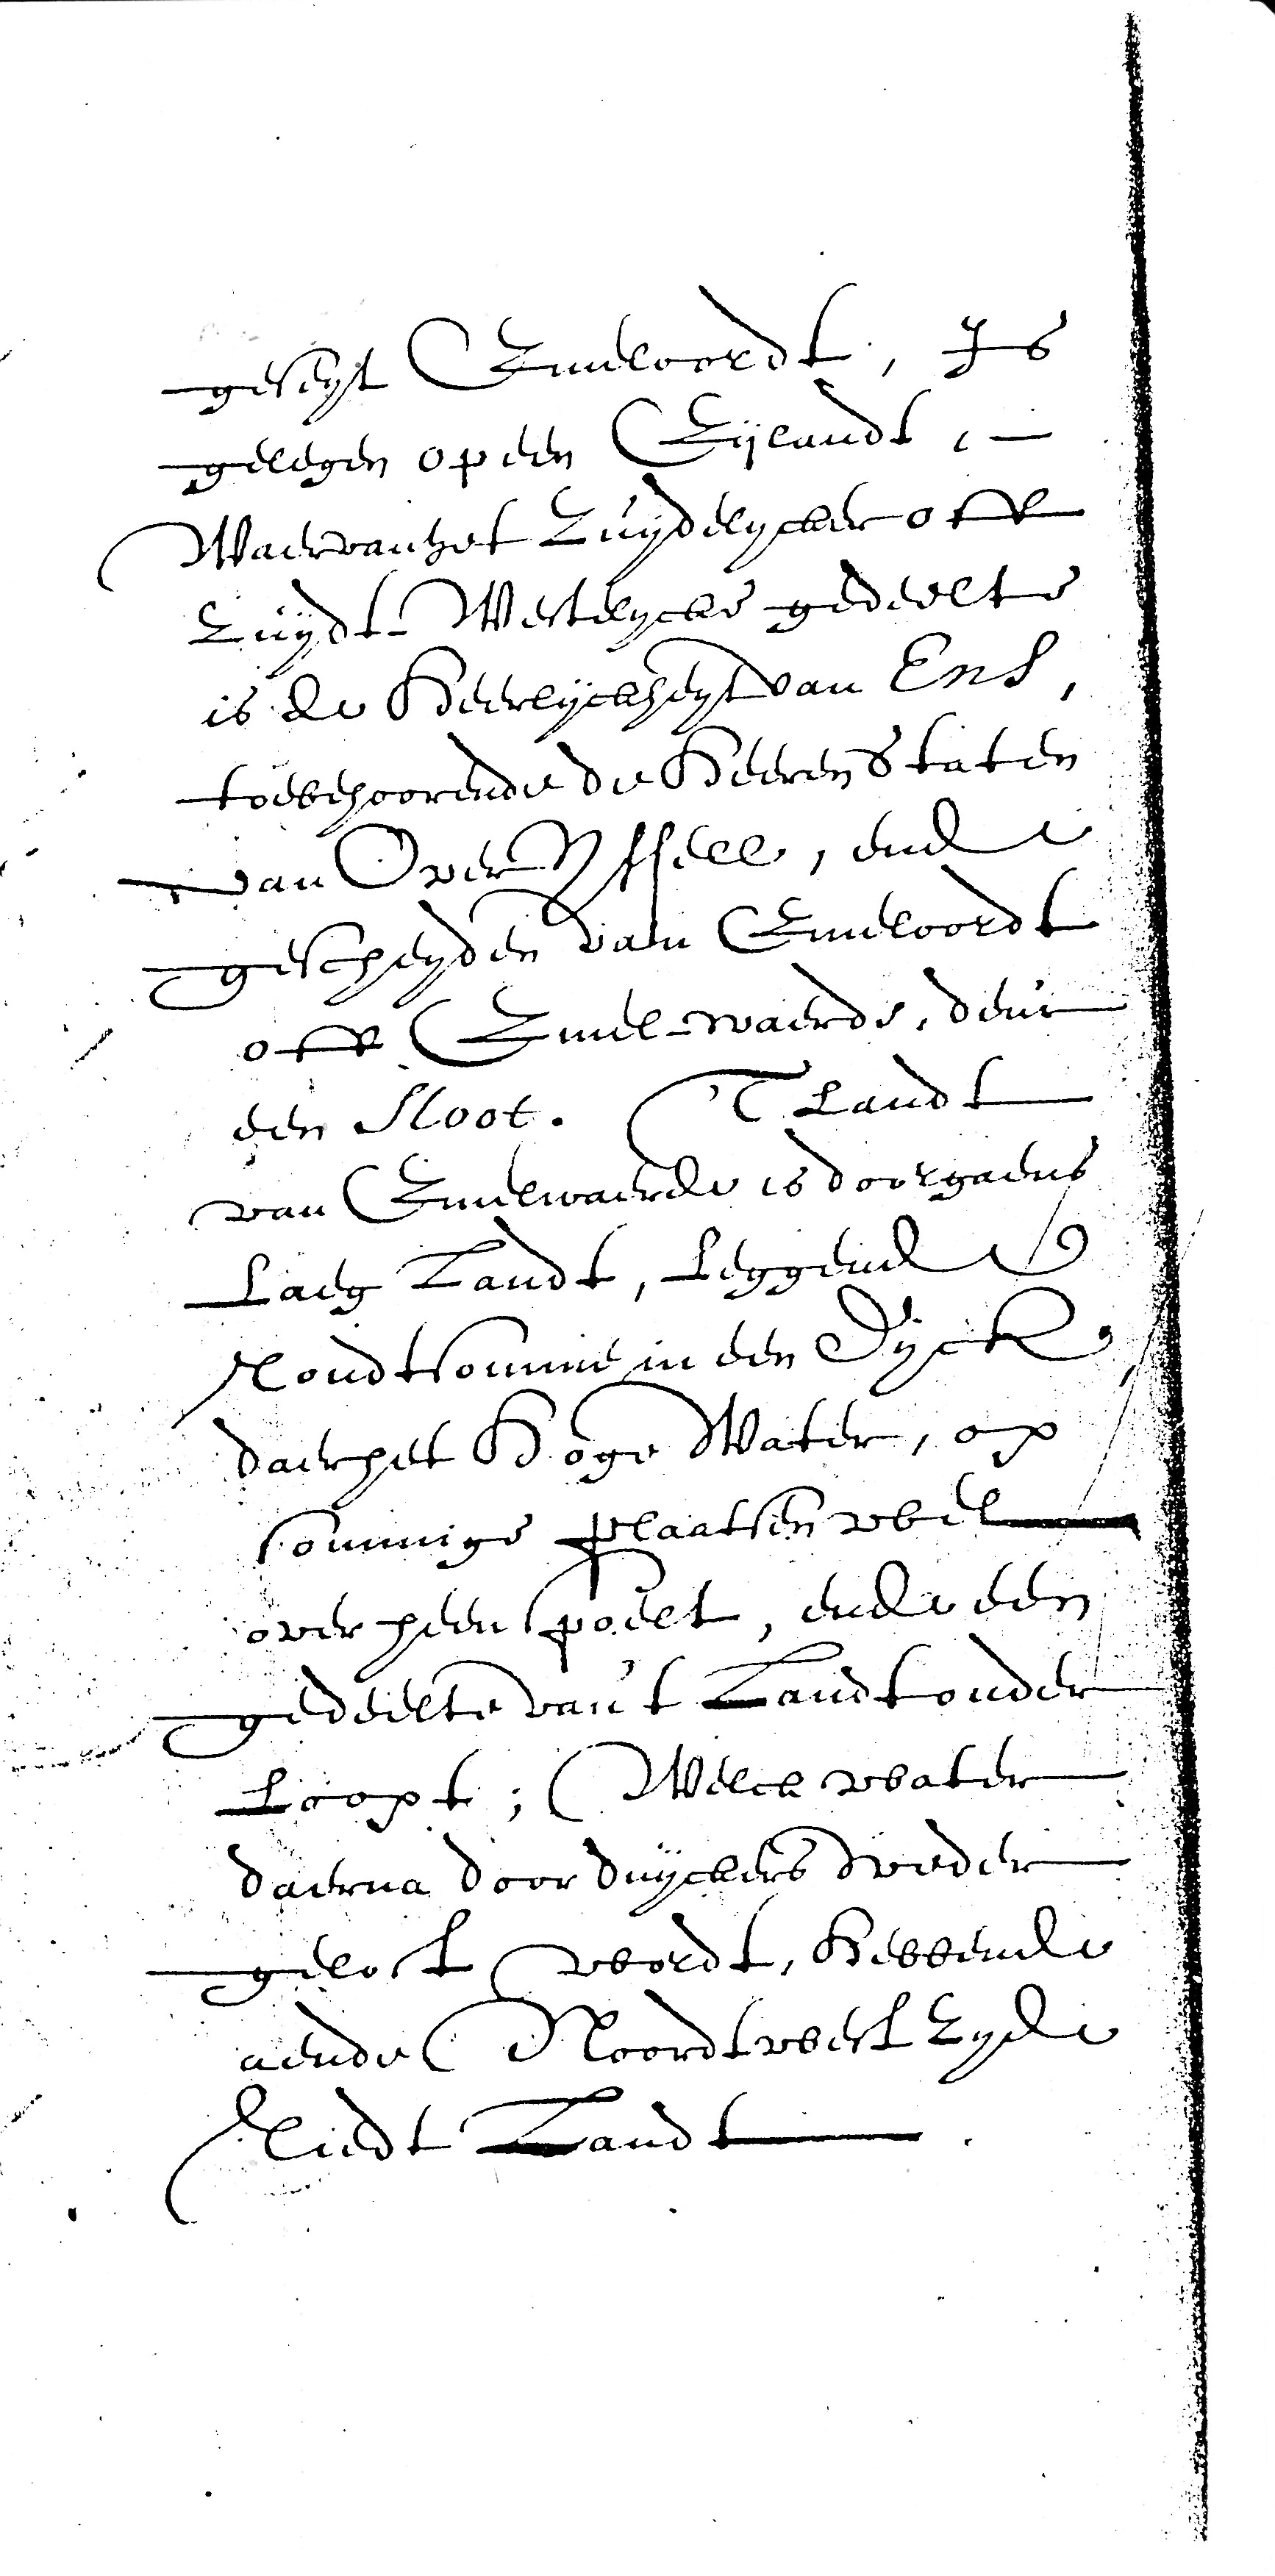 geseyt Emeloordt, Is
gelegen op een Eijlandt,
Waervan het Zuijdelycker off
Zuijdt-Westelycke gedeelte
is de Heerlijckheyt van Ens,
toebehoorende de Heeren Staten
van Over Yssell, ende
gescheyden van Emeloordt
off Emel-waerde, deur
een sloot. T Landt
van Emelwaerde is doorgaens
Laeg Landt, Leggende
Rondtsomme in een Dijck,
daer het Hoge Water, op
sommige plaatsen wel
over heen spoelt, ende een
gedeelte van't Landt onder
Loopt; Welck water
daerna door duyckers weder
gelost wordt, Hebbende
aende Noordtwest Zyde
Riedt Landt.